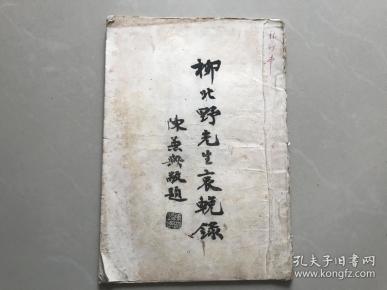 柳北野先生哀挽錄
陳兼與敬題
孔夫子旧书网